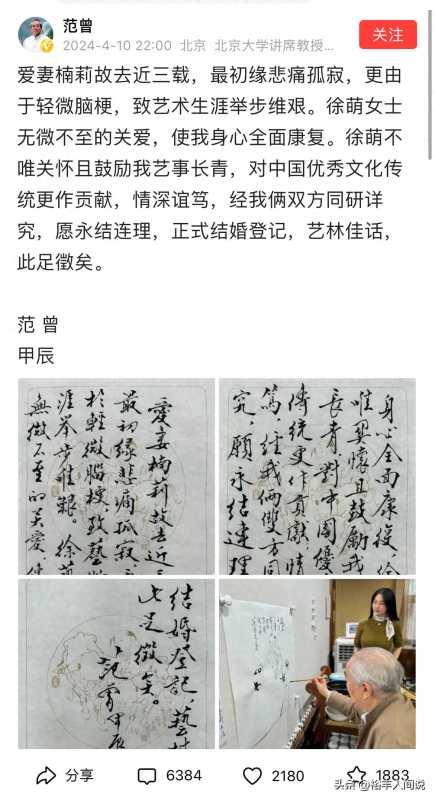 范曾
2024-4-10 22:00 北京 北京大学讲席教授...
关注
爱妻楠莉故去近三载，最初缘悲痛孤寂，更由
于轻微脑梗，致艺术生涯举步维艰。徐萌女士
无微不至的关爱，使我身心全面康复。徐萌不
唯关怀且鼓励我艺事长青，对中国优秀文化传
统更作贡献，情深谊笃，经我俩双方同研详
究，愿永结连理，正式结婚登记，艺林佳话，
此足徵矣。
范 曾
甲辰
愛妻楠莉故去近三
最初缘悲痛孤寂
於輕微腦梗，致藝
涯举步维艱。徐
無微不至的关爱
身心全面康復。徐
唯関懷且鼓励我
長青，對中國優
傳統更作貢獻，情
篤，经我俩雙方同
究，願永结連理
结婚登记，藝林
此足徵矣。
范曾甲辰
分享
6384
2180
1883
头条 @裕丰人间说